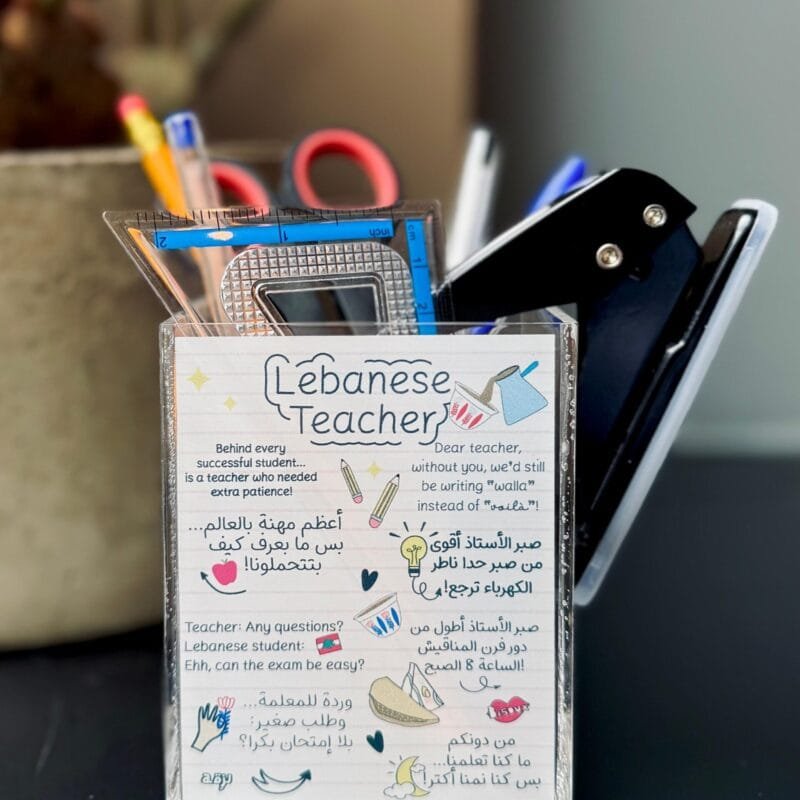 Lebanese
Teacher
Behind every
successful student...
is a teacher who needed
extra patience!
Dear teacher,
without you, we'd still
be writing "walla"
instead of "voilà"!
أعظم مهنة بالعالم...
بس ما بعرف كيف
بتتحملونا!
صبر الأستاذ أقوى
من صبر حدا ناطر
الكهرباء ترجع!
Teacher: Any questions?
Lebanese student:
Ehh, can the exam be easy?
صبر الأستاذ أطول من
دور فرن المناقيش
الساعة 8 الصبح!
وردة للمعلمة...
وطلب صغير:
بلا إمتحان بكرا؟
من دونكم
ما كنا تعلمنا...
بس كنا نمنا أكتر!
2
1
inch
cm
1
2